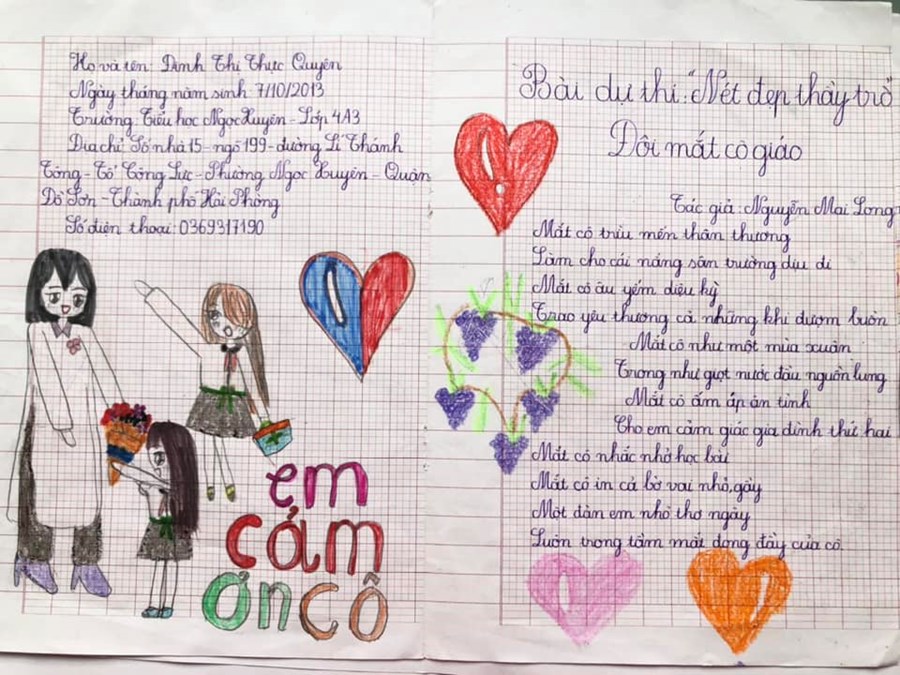 Họ và tên: Đinh Thị Thục Quyên
Ngày tháng năm sinh 7/10/2013
Trường Tiểu học Ngọc Xuyên - Lớp 4A3
Địa chỉ Số nhà 15 - ngõ 199 - đường Lí Thánh
Tông - Tổ Công Lực - Phường Ngọc Xuyên - Quận
Đồ Sơn - Thành phố Hải Phòng
Số điện thoại: 0369317190
em
cảm
ơn cô
Bài dự thi: "Nét đẹp thầy trò"
Đôi mắt cô giáo
Tác giả: Nguyễn Mai Long
Mắt cô trìu mến thân thương
Làm cho cái nắng sân trường dịu đi
Mắt cô âu yếm diệu kỳ
Trao yêu thương cả những khi đượm buồn
Mắt cô như một mùa xuân
Trong như giọt nước đầu nguồn lung
Mắt cô ấm áp ân tình
Cho em cảm giác gia đình thứ hai
Mắt cô nhắc nhở học bài
Mắt cô in cả bờ vai nhỏ, gầy
Một đàn em nhỏ thơ ngây
Luôn trong tầm mắt đong đầy của cô.